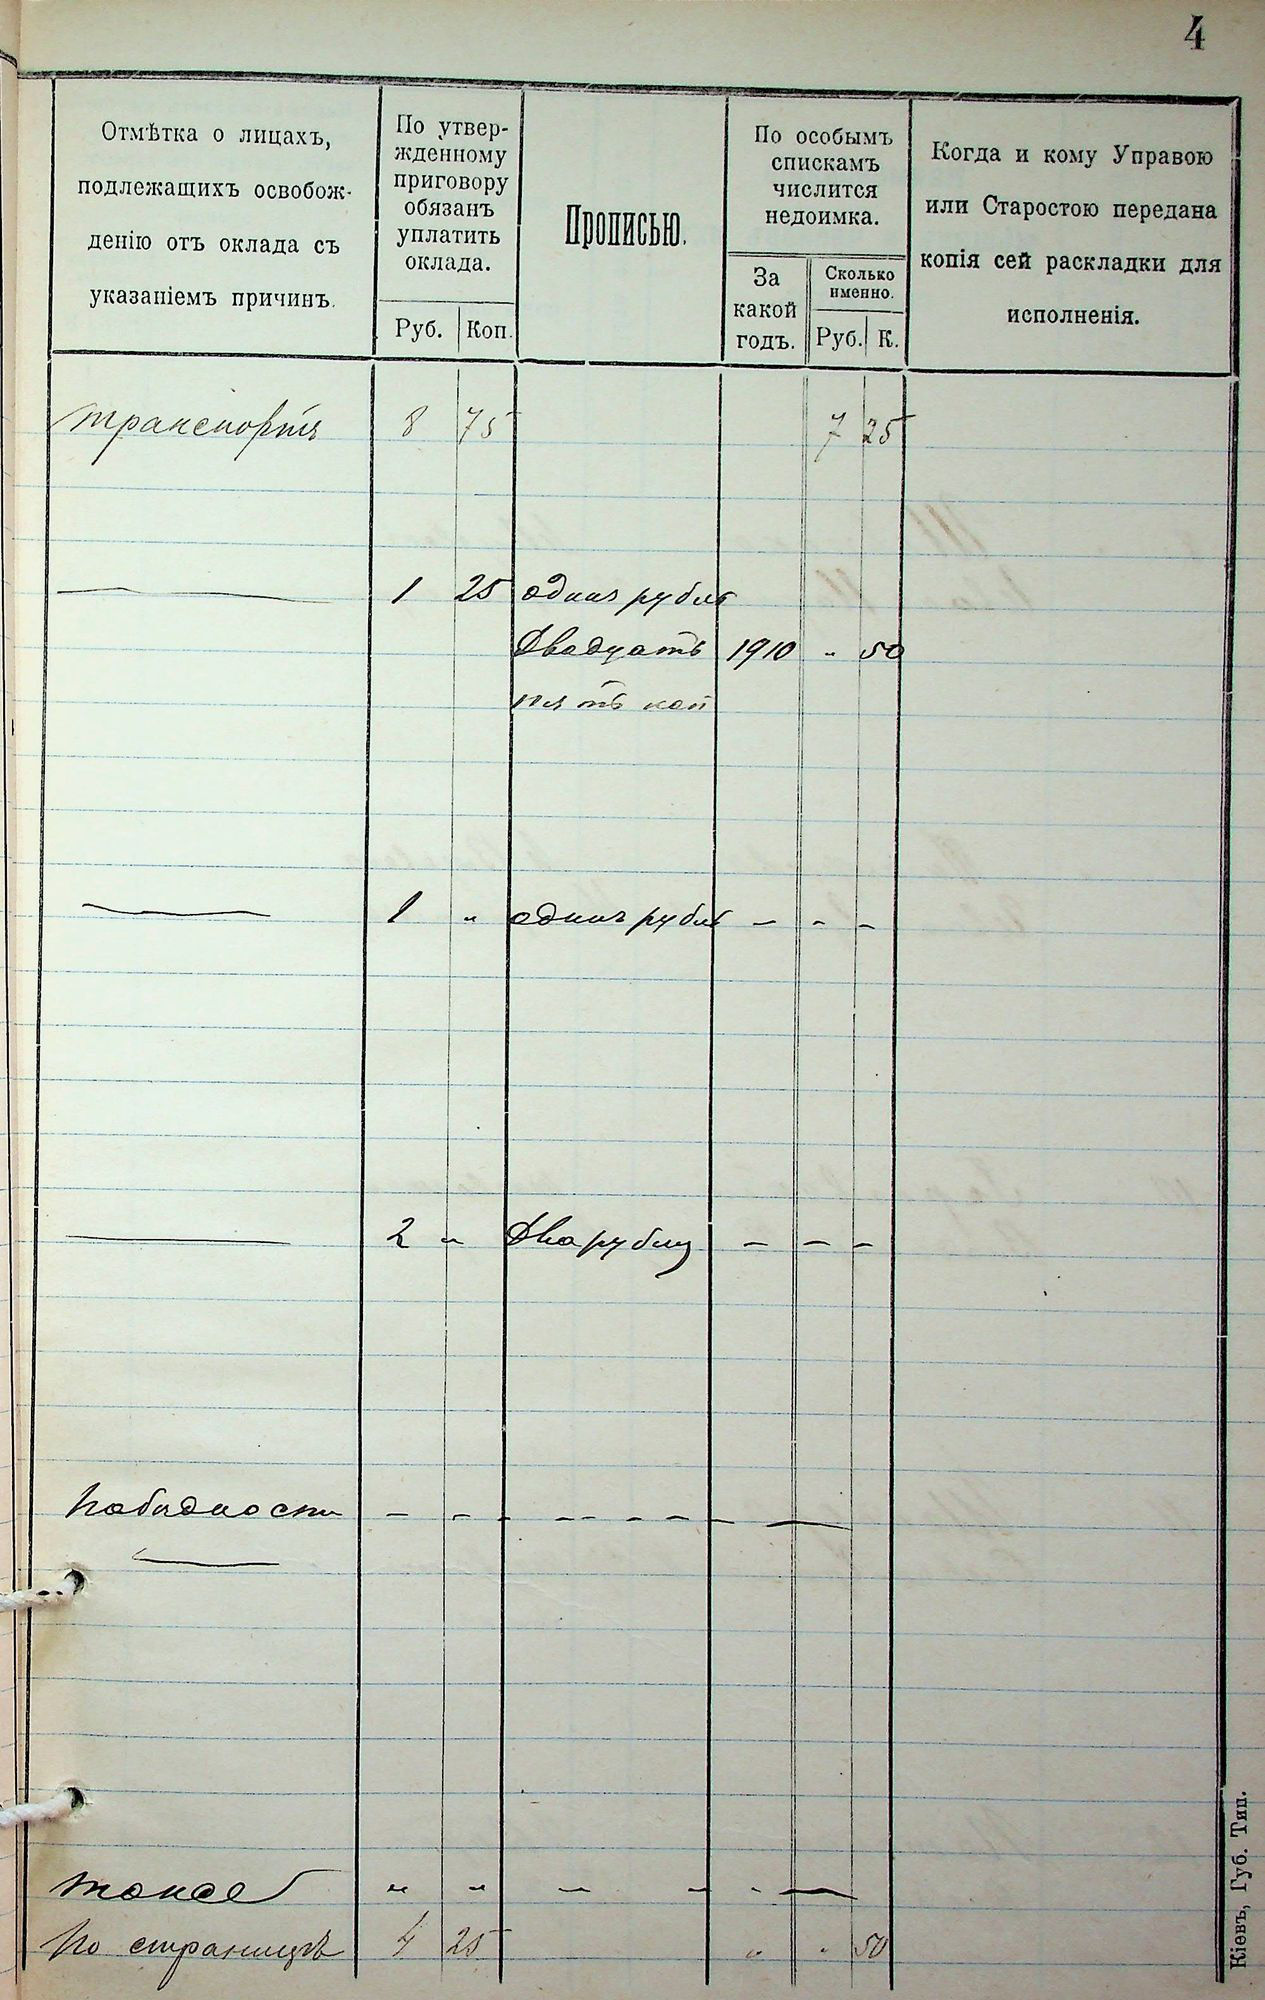 4
Отмѣтка о лицахъ,
подлежащихъ освобож-
денію отъ оклада съ
указаніемъ причинъ.
По утвер-
жденному
приговору
обязанъ
уплатить
оклада.
Руб. Коп.
Прописью.
По особымъ
спискамъ
числится
недоимка.
За
какой
годъ.
Сколько
именно.
Руб. К.
Когда и кому Управою
или Старостою передана
копія сей раскладки для
исполненія.
транспортъ 8 75 7 25
— 1 25 одинъ рубль
двадцать 1910 " 50
пять коп
— 1 " одинъ рубль - - -
— 2 " два рубли - - -
по бѣдности - - - - - - - - —
тоже " " - - - —
По страницѣ 4 25 " " 50
Кіевъ, Губ. Тип.